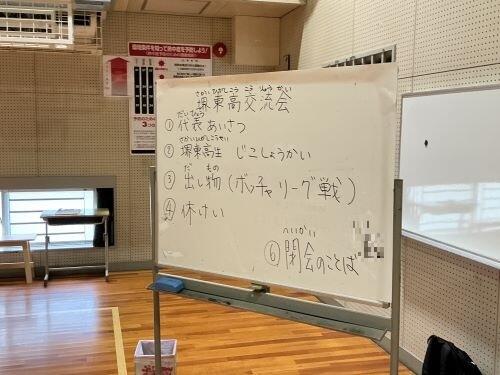 環境条件を知って熱中症を予防しよう!
さかいひがしこう こう りゅう かい
堺東高交流会
だいひょう
① 代表あいさつ
さかいひがしこうせい
② 堺東高生 じこしょうかい
だ もの
③ 出し物(ボッチャリーグ戦)
④ 休けい
へいかい
⑥ 閉会のことば